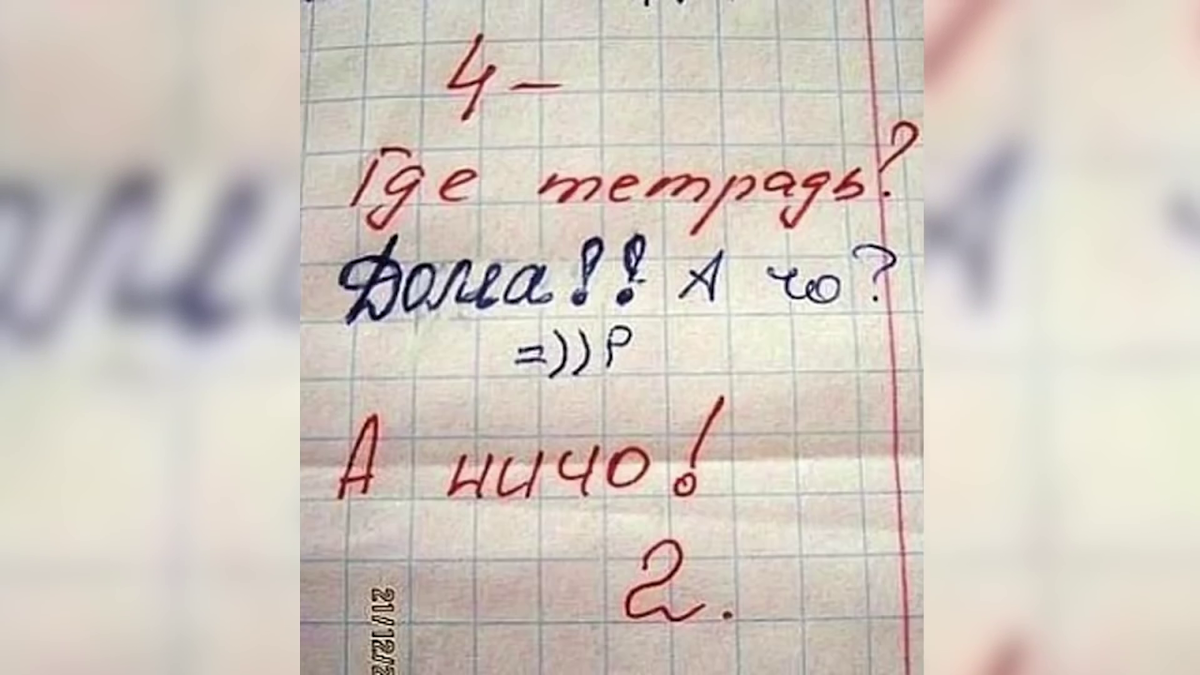 4 –
Где тетрадь?
Дома!! А чо?
=))P
А ничо!
2.
21/12/2